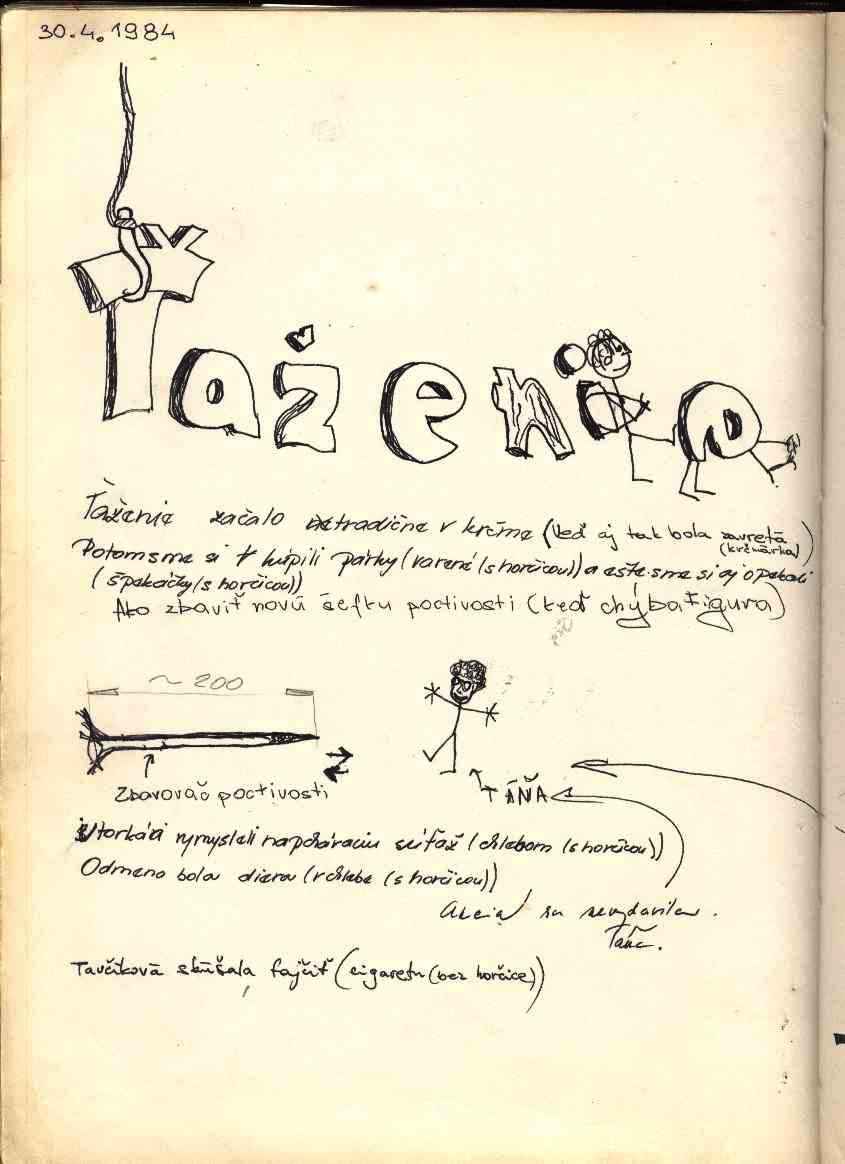 30.4.1984
Ťaženie
Ťaženie začalo netradične v krčme (keď aj tak bola zavretá
(krčmárka)
Potom sme si kúpili párky (varené (s horčicou)) a ešte sme si aj opekali
(špekáčky (s horčicou))
Ako zbaviť novú šéfku poctivosti (keď chýba figura)
~ 200
Zbavovač poctivosti
TÁŇA
Utorkári vymysleli napchávaciu súťaž (chlebom (s horčicou))
Odmena bola diera (v chlebe (s horčicou))
Akcia sa nevydarila.
Táňa.
Tavčíková skúšala fajčiť (cigaretu (bez horčice))